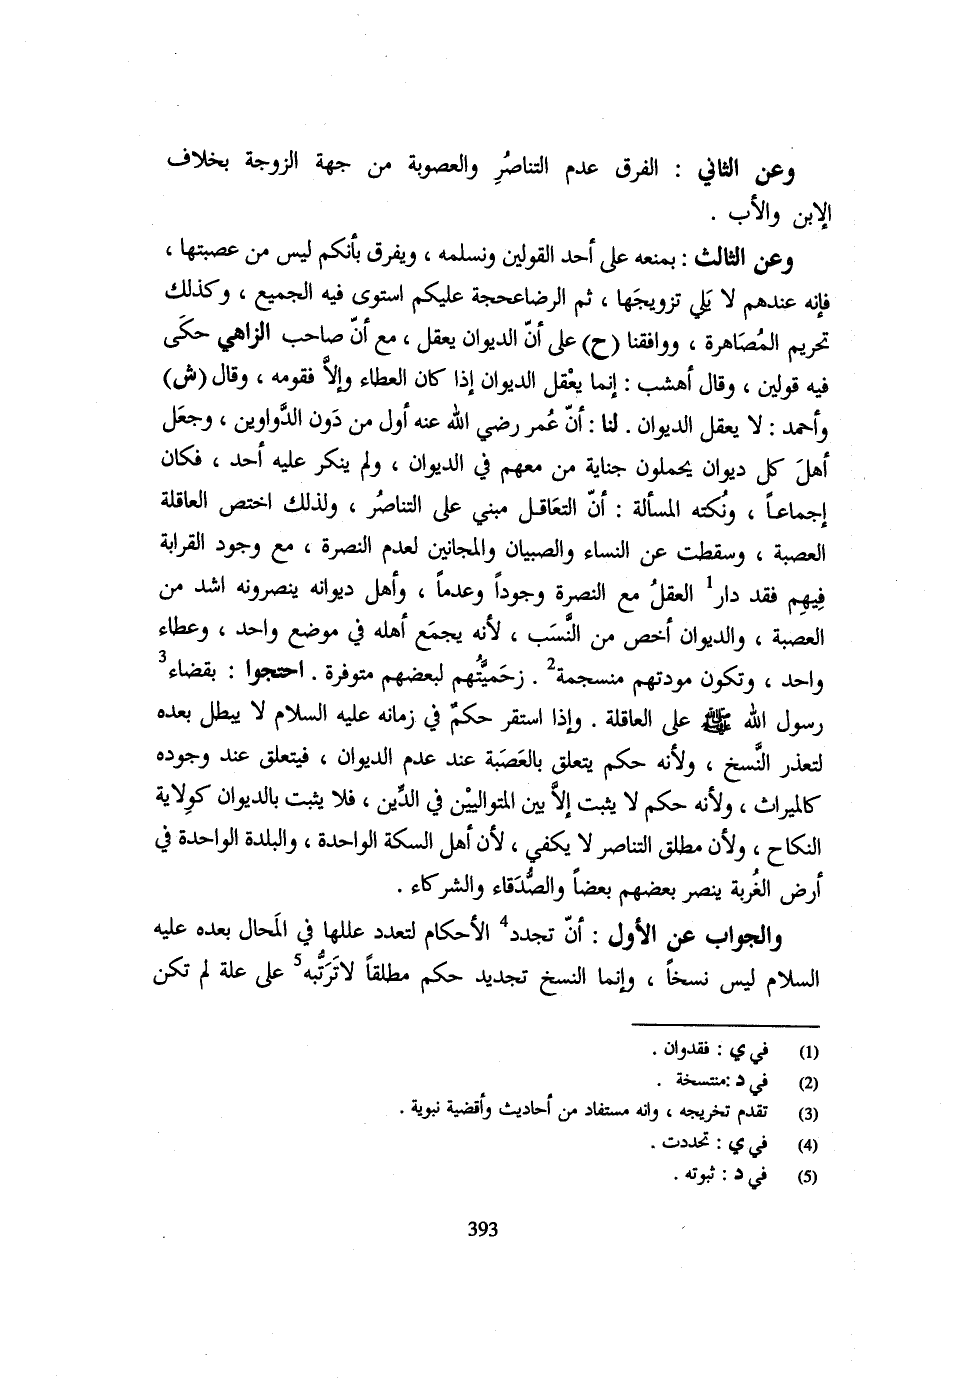 وعن الثاني : الفرق عدم التناصُرِ والعصوبة من جهة الزوجة بخلاف
الإبن والأب .
وعن الثالث : بمنعه على أحد القولين ونسلمه ، ويفرق بأنكم ليس من عصبتها ،
فإنه عندهم لا يَلي تزويجَها ، ثم الرضاعحجة عليكم استوى فيه الجميع ، وكذلك
تحريم المُصَاهرة ، ووافقنا (ح) على أنّ الديوان يعقل ، مع أنّ صاحب الزاهي حكَى
فيه قولين ، وقال أهشب : إنما يعْقل الديوان إذا كان العطاء وإلاَّ فقومه ، وقال (ش)
وأحمد : لا يعقل الديوان . لنا : أنّ عُمر رضي الله عنه أول من دَون الدَّواوين ، وجعَل
أهلَ كل ديوان يحملون جناية من معهم في الديوان ، ولم ينكر عليه أحد ، فكان
إجماعاً ، ونُكته المسألة : أنّ التعَاقل مبني على التناصُر ، ولذلك اختص العاقلة
العصبة ، وسقطت عن النساء والصبيان والمجانين لعدم النصرة ، مع وجود القرابة
فِيهِم فقد دار1 العقلُ مع النصرة وجوداً وعدماً ، وأهل ديوانه ينصرونه اشد من
العصبة ، والديوان أخص من النَّسَب ، لأنه يجمَع أهله في موضع واحد ، وعطاء
واحد ، وتكون مودتهم منسجمة2 . زحَميَّتُهم لبعضهم متوفرة . احتجوا : بقضاء3
رسول الله ﷺ على العاقلة . وإذا استقر حكمٌ في زمانه عليه السلام لا يبطل بعده
لتعذر النَّسخ ، ولأنه حكم يتعلق بالعَصَبة عند عدم الديوان ، فيتعلق عند وجوده
كالميراث ، ولأنه حكم لا يثبت إلاَّ بين المتواليْن في الدِّين ، فلا يثبت بالديوان كوِلاية
النكاح ، ولأن مطلق التناصر لا يكفي ، لأن أهل السكة الواحدة ، والبلدة الواحدة في
أرض الغُربة ينصر بعضهم بعضاً والصُّدَقاء والشركاء .
والجواب عن الأول : أنّ تجدد4 الأحكام لتعدد عللها في المَحال بعده عليه
السلام ليس نسخاً ، وإنما النسخ تجديد حكم مطلقاً لاتَرَتُّبه5 على علة لم تكن
(1) في ي : فقدوان .
(2) في د :منتسخة .
(3) تقدم تخريجه ، وانه مستفاد من أحاديث وأقضية نبوية .
(4) في ي : تحددت .
(5) في د : ثبوته .
393